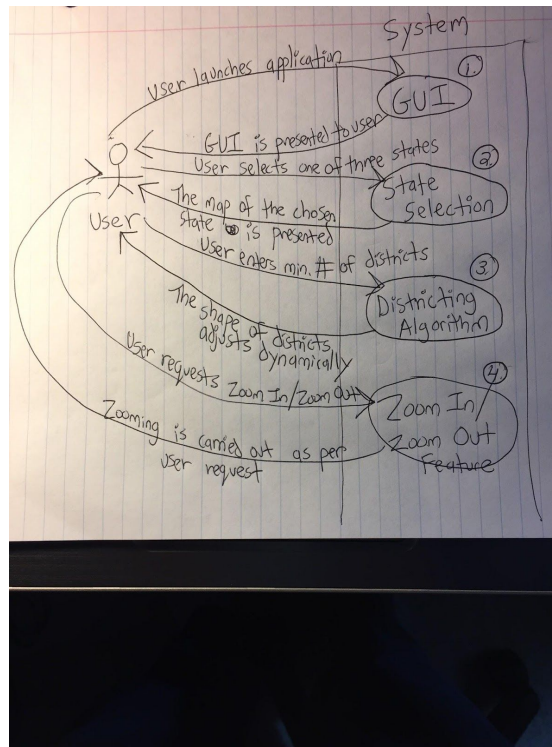 System
User launches application
1.
GUI
GUI is presented to user
User selects one of three states
2
State
Selection
The map of the chosen
state is presented
User
User enters min. # of districts
3
Districting
Algorithm
The shape of districts
adjusts dynamically
User requests Zoom In/Zoom Out
4
Zoom In/
Zoom Out
Feature
Zooming is carried out as per
user request